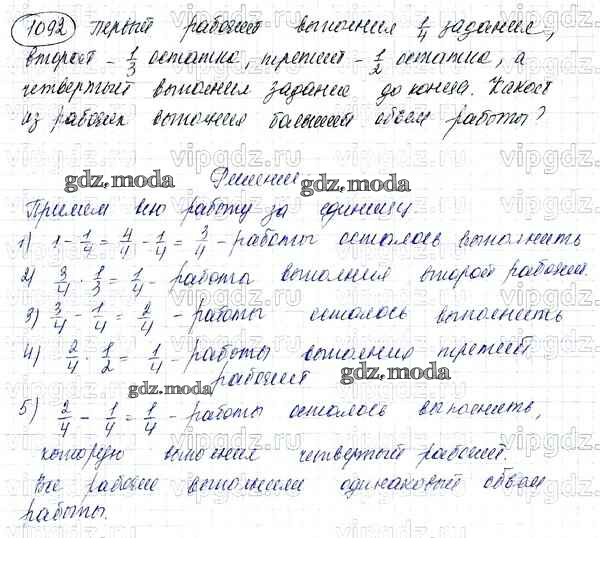 1092 Первый рабочий выполнил 1/4 задание,
второй - 1/3 остатка, третий - 1/2 остатка, а
четвертый выполнил задание до конца. Какой
из рабочих выполнил больший объем работы?
Решение
gdz.moda gdz.moda
Примем всю работу за единицу
1) 1 - 1/4 = 4/4 - 1/4 = 3/4 - работы осталось выполнить
2) 3/4 · 1/3 = 1/4 - работа выполнил второй рабочий.
3) 3/4 - 1/4 = 2/4 - работы осталось выполнить
4) 2/4 · 1/2 = 1/4 - работы выполнил третий
рабочий
gdz.moda gdz.moda
5) 2/4 - 1/4 = 1/4 - работы осталось выполнить,
которую выполнил четвертый рабочий.
Все рабочие выполнили одинаковый объем
работы.
vipgdz.ru